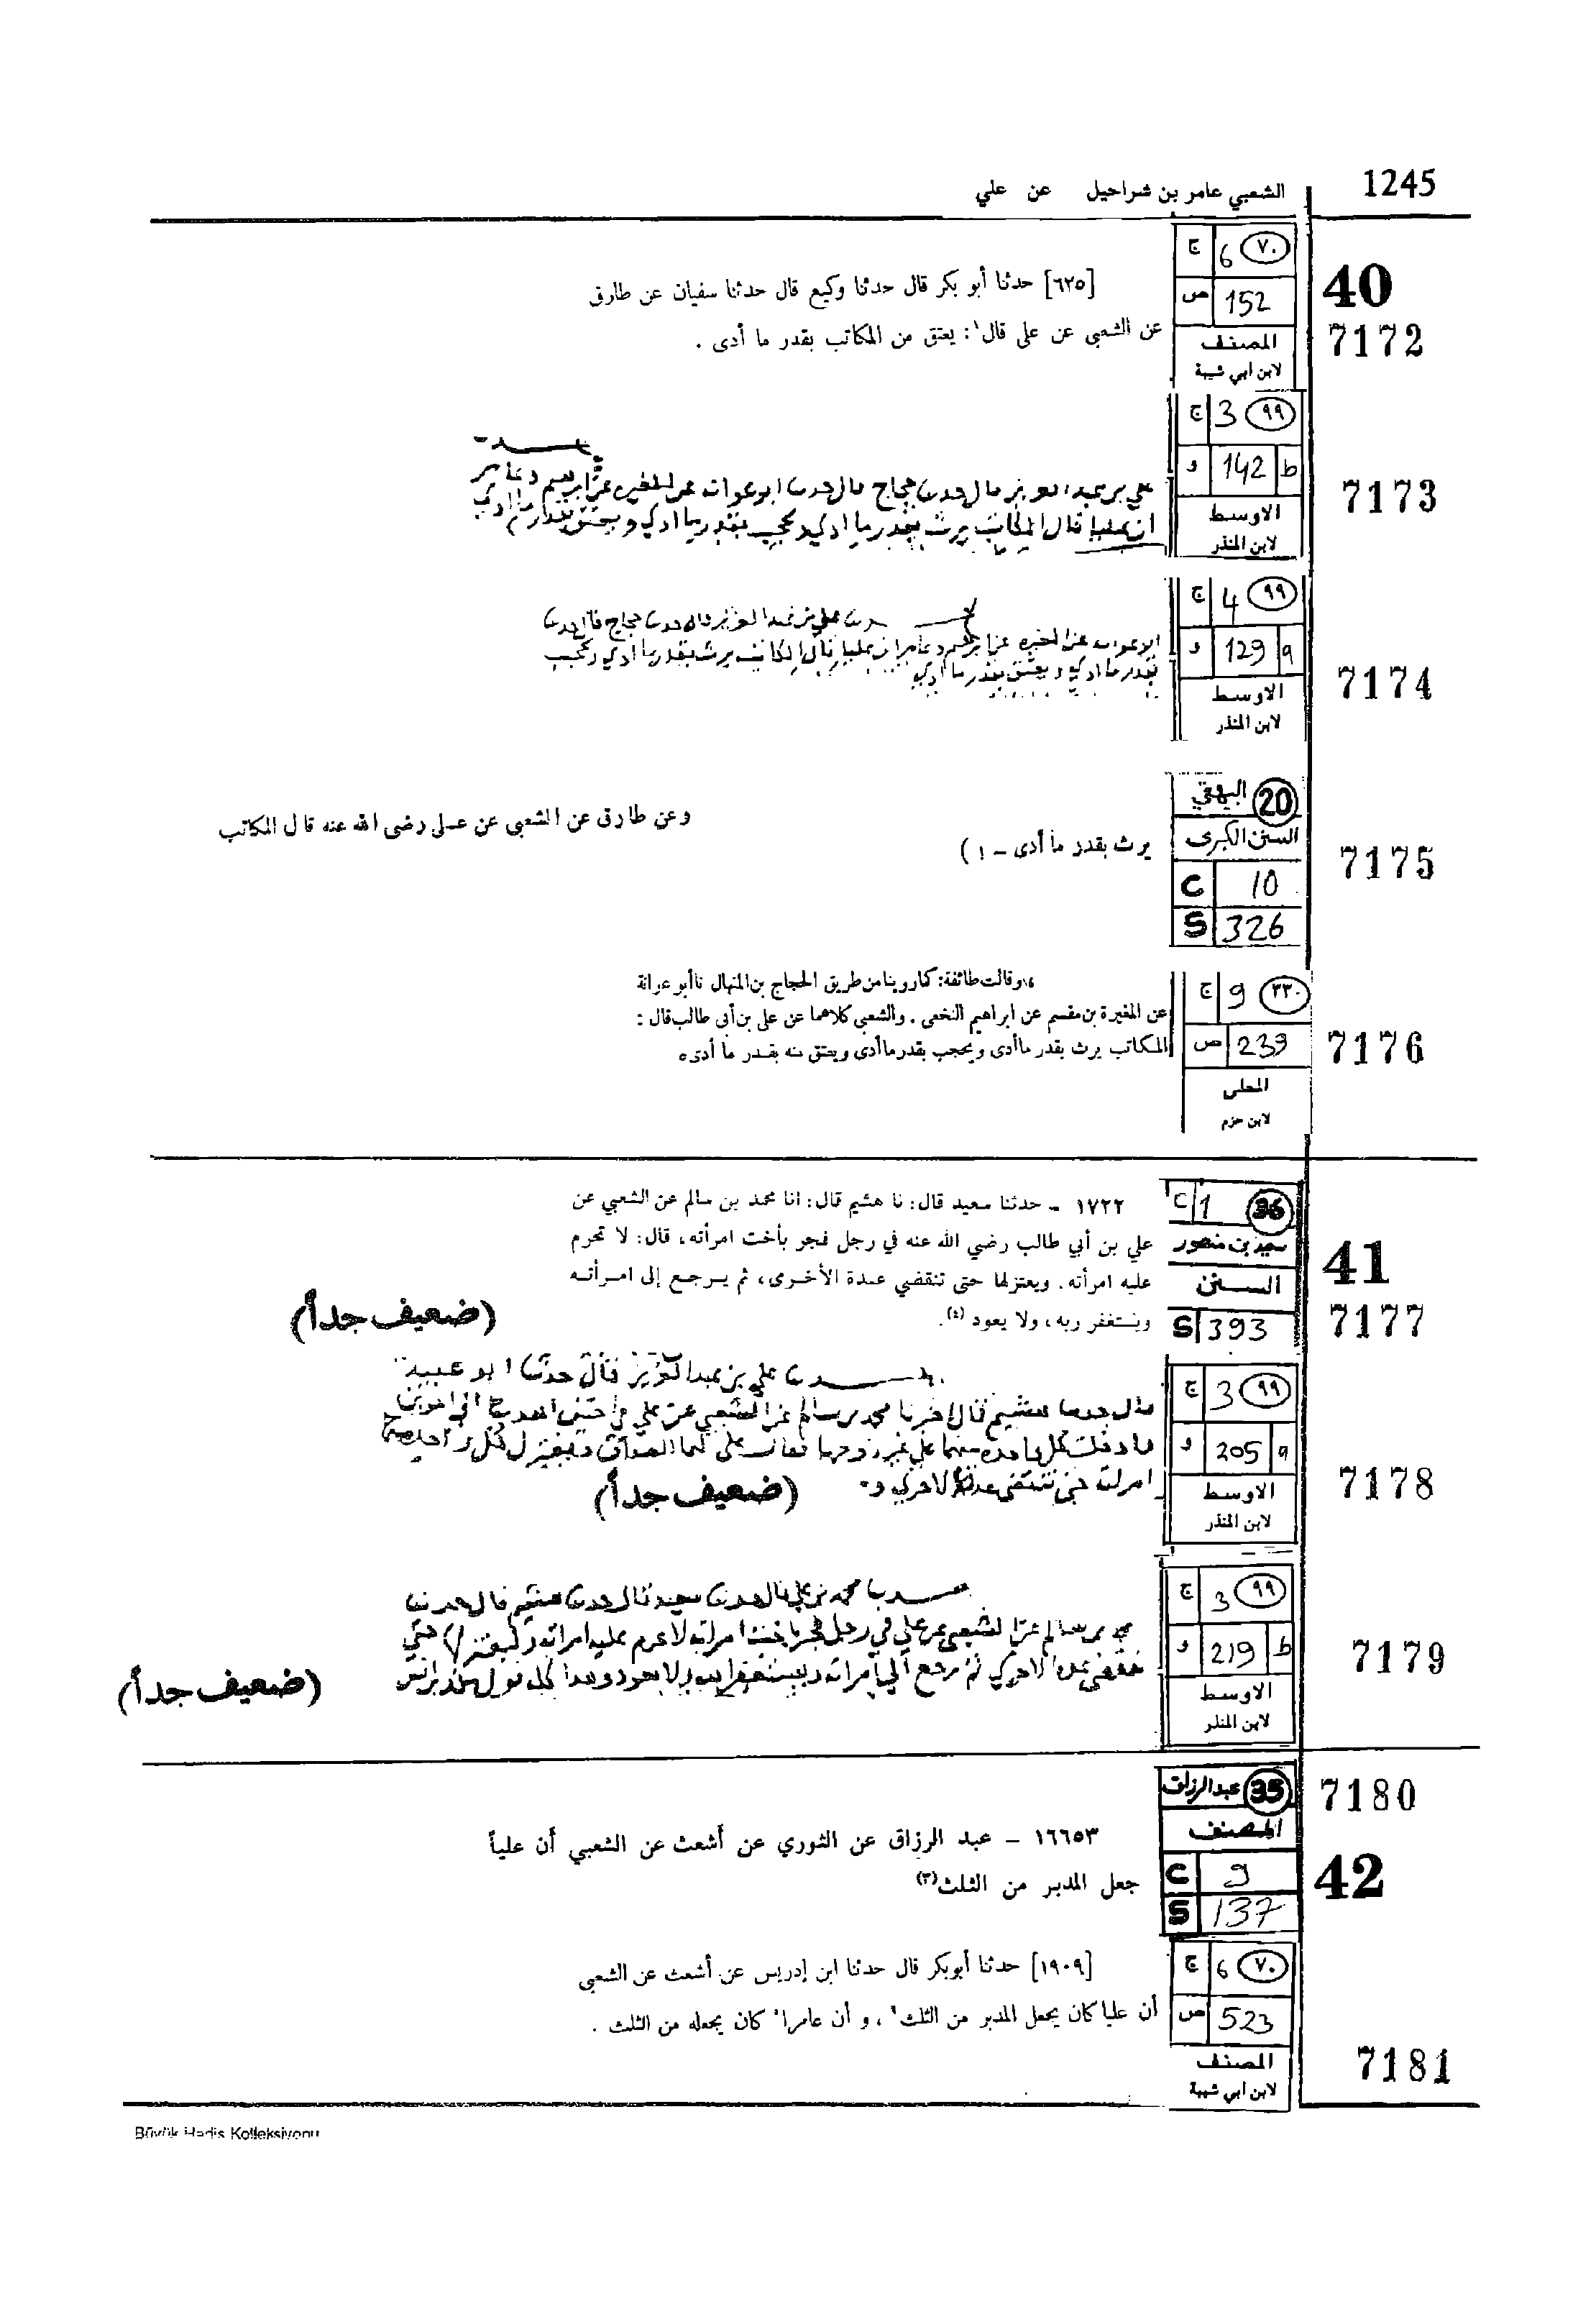 1245
الشعبي عامر بن شراحيل عن علي
40
7172
ج 6 ٧٠
ص 152
المصنف
لابن ابي شيبة
[٦٢٥] حدثنا أبو بكر قال حدثنا وكيع قال حدثنا سفيان عن طارق
عن الشعبي عن على قال١: يعتق من المكاتب بقدر ما أدى .
7173
ج 3 ٩٩
و 142 b
الاوسط
لابن المنذر
علي بن عبد العزيز قال حدثنا حجاج قال حدثنا ابو عوانه عن المغيره عن ابرهيم وعامر
ان عليا قال المكاتب يرث بقدر ما ادي ويحجب بقدر ما ادي ويعتق بقدر ما ادي
7174
ج 4 ٩٩
و 129 a
الاوسط
لابن المنذر
حدثنا علي بن عبد العزيز قال حدثنا حجاج قال حدثنا
ابو عوانه عن المغيره عن ابرهيم وعامر ان عليا قال المكاتب يرث بقدر ما ادي ويحجب
بقدر ما ادي ويعتق بقدر ما ادي
7175
20 البيهقي
السنن الكبرى
C 10
S 326
وعن طارق عن الشعبى عن عـلى رضى الله عنه قال المكاتب
يرث بقدر ما أدى - ١ )
7176
ج 9 ٢٣٠
ص 239
المحلى
لابن حزم
وقالت طائفة: كما روينا من طريق الحجاج بن المنهال نا أبو عوانة
عن المغيرة بن مقسم عن ابراهيم النخعى . والشعبى كلاهما عن على بن أبى طالب قال :
المكاتب يرث بقدر ما أدى ويحجب بقدر ما أدى ويعتق منه بقدر ما أدى ه
41
7177
C 1 36
سعيد بن منصور
السنن
S 393
١٧٢٢ - حدثنا سعيد قال: نا هشيم قال: انا محمد بن سالم عن الشعبي عن
علي بن أبي طالب رضي الله عنه في رجل فجر بأخت امرأته، قال: لا تحرم
عليه امرأته. ويعتزلها حتى تنقضي عدة الأخرى، ثم يرجع إلى امرأته
ويستغفر ربه، ولا يعود (٤).
(ضعيف جداً)
7178
ج 3 ٩٩
و 205 a
الاوسط
لابن المنذر
حدثنا علي بن عبد العزيز قال حدثنا ابو عبيد
قال حدثنا هشيم قال اخبرنا محمد بن سالم عن الشعبي عن علي في
امراته حتى تنقضي عدة الاخري
(ضعيف جداً)
7179
ج 3 ٩٩
و 219 b
الاوسط
لابن المنذر
حدثنا محمد بن علي قال حدثنا سعيد قال حدثنا هشيم قال حدثنا
محمد بن سالم عن الشعبي عن علي في رجل فجر باخت امراته لا تحرم عليه امراته ويعتزلها حتي
تنقضي عدة الاخري ثم يرجع الي امراته ويستغفر الله ولا يعود وهذا
(ضعيف جداً)
7180
42
35 عبد الرزاق
المصنف
C 9
S 137
١٦٦٥٣ - عبد الرزاق عن الثوري عن أشعث عن الشعبي أن علياً
جعل المدبر من الثلث(٣)
7181
ج 6 ٧٠
ص 523
المصنف
لابن ابي شيبة
[١٩٠٩] حدثنا أبوبكر قال حدثنا ابن إدريس عن أشعث عن الشعبى
أن عليا كان يجعل المدبر من الثلث١ ، و أن عامرا٢ كان يجعله من الثلث .
Büyük Hadis Kolleksiyonu